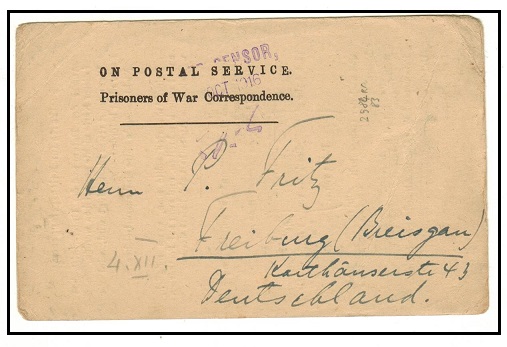 CENSOR,
ON POSTAL SERVICE.
OCT 1916
Prisoners of War Correspondence.
Herrn P. Fritz
Freiburg (Breisgau)
4.XII.
Karthäuserstr 43
Deutschland.